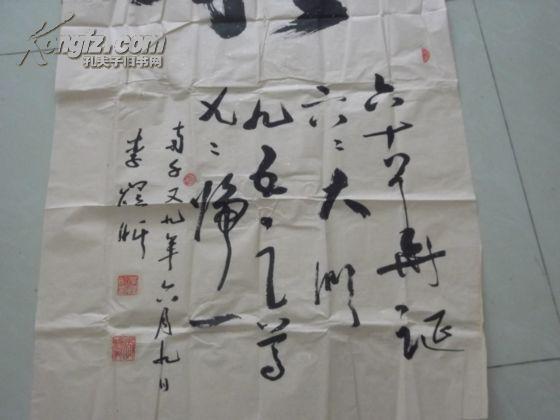 Kongfz.com
孔夫子旧书网
六十年再诞
六〻大顺
九五之尊
九〻歸一
两千又九年六月九日
李